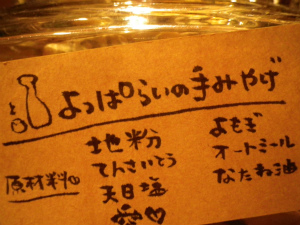 よっぱらいの手みやげ
原材料
地粉
てんさいとう
天日塩
愛♡
よもぎ
オートミール
なたね油